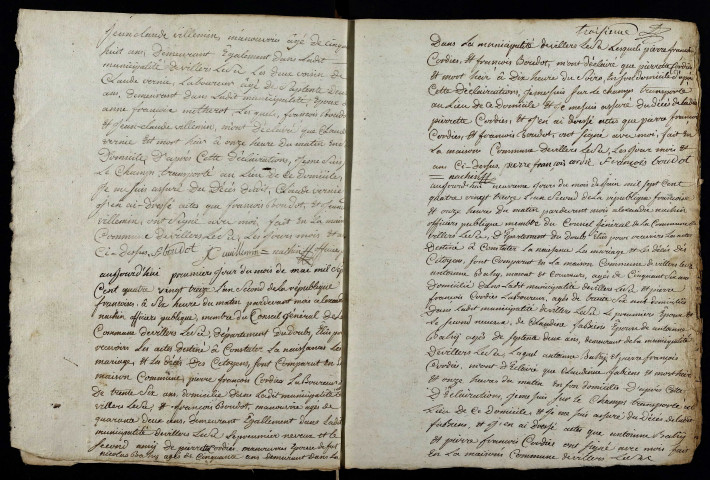 Jean claude villemin, manouvru agé de cinqu
huit ans, demeurant Egalement dans Ladit
municipalité de villers Le Sec Les deux voisin de
Claude vernie, Laboureur agé de Septente deux
ans, demeurant dans Ladit municipalité, Epoux
anne francoise metherot Lesquels, francois boudot
et Jean claude villemin, mont déclaré que claude
vernie est mort hier à onze heure du matin en son
Domicile, D'apres Cette Déclairation, Je me suis
Le Champ transporté au Lieu de Ce domicile,
Je me suis assuré du Décès dudit, Claude vernie
et J'en ai dressé actes que francois boudot, et Jean
villemin, ont signé avec moi, fait en La maison
Commune de villers Le Sec, Les Jours mois et an
Ci-dessus, f boudot J C villemin = nachin
aujourdhui premier Jour du mois de mai mil Sept
Cent quatre vingt treize L'an second de la république
francoise, à Six heure du matin pardevant moi alexandre
nachin officier publique, membre du Conseil Général de La
Commune de villers Le Sec, Département du doubs, Elus pour
recevoir Les actes destiné à Constater La naissance Les
mariage, et Les décès Des Citoyens, sont Comparut en la
maison Commune, pierre francois Cordier Laboureur
de trente six ans, domicilié dans Ladit municipalité de
villers Le Sec, et francois Boudot, manouvrie agés de
quarante deux ans, demeurant Egalement dans La dit
municipalité de villers Le Sec Le premier neveux et le
Second amy de pierrette Cordier, manouvriere Epouse de feu
nicolas agés de Cinquante ans demeurant dans La
troisieme
Dans La municipalité de villers Le Sec Lesquels pierre francois
Cordier, et francois Boudot, mont déclairé que pierrette Cordier
est mort hier à Dix heure du Soire en son domicile d'apres
Cette Déclairation, Je me suis sur le Champs transporté
au Lieu de Ce domicile et Je me suis assuré du Décès de Ladite
pierrette Cordier, et J'en ai dressé actes que pierre francois
Cordier, et francois Boudot, ont signé avec moi, fait en
La maison Commune de villers Le Sec, Les Jour mois et
ans Ci-dessus, pierre francois cordié francois boudot
= nachin
aujourdhui neuvieme Jours du mois de Juin mil sept cent
quatre vingt treize L'an Second de la république francoise
et onze heures du matin pardevant moi alexandre nachin
officiers publique membre du Conseil General de la Commune de
villers Le Sec, Département du doubs, Elus pour recevoir Les actes
Destiné à Constater La naissance La mariage et Le décès Des
Citoyens, sont Comparut en La maison Commune de villers le sec
antoinne Bailly, agés de Cinquante six ans
Domicilié dans Ladit municipalité de villers Le Sec et pierre
francois Cordier Laboureur, agés de trente Six ans domicilié
Dans Ladit municipalité de villers Le Sec, Le premier Epoux et
Le second neveux, de Claudine fabiens Epouse de antoinne
Bailly agés de Septente deux ans, demeurant de la municipalité
de villers Le Sec, Lequel antoinne Bailly et pierre francois
Cordier, mont déclaré que Claudinne fabiens est mort hier
et onze heures du matin en son domicile D'apres Cette
Déclairation, Je me suis sur Le Champs transporté au
Lieu de Ce Domicile et Je me suis assuré du Décès de Ladite
fabiens, et J'en ai dressé actes que antoinne Bailly
et pierre francois Cordier ont signé avec moi fait
En La maison Commune de villers Le Sec